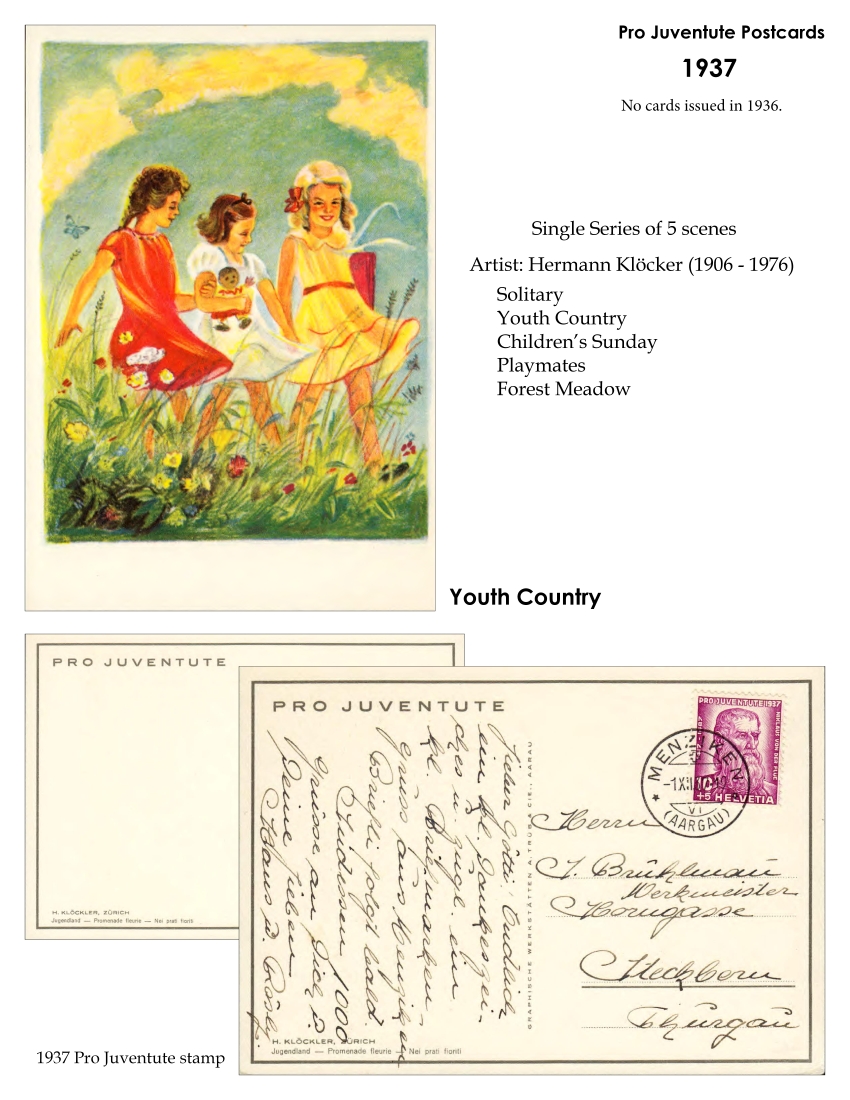 Pro Juventute Postcards
1937
No cards issued in 1936.
Single Series of 5 scenes
Artist: Hermann Klöcker (1906 - 1976)
Solitary
Youth Country
Children’s Sunday
Playmates
Forest Meadow
Youth Country
PRO JUVENTUTE
H. KLÖCKLER, ZÜRICH
Jugendland — Promenade fleurie — Nei prati fioriti
PRO JUVENTUTE
Lieber Götti! Endlich
ein kl. Dankeszei-
ches u. zugl. ein
kl. Briefmarken-
gruss aus Menziken
Briefli folgt bald.
Indessen 1000
Grüsse an Dich u.
Deine Lieben
Hans u. Rösly
H. KLÖCKLER, ZÜRICH
Jugendland — Promenade fleurie — Nei prati fioriti
GRAPHISCHE WERKSTÄTTEN A. TRÜB & CIE., AARAU
PRO JUVENTUTE 1937
NIKLAUS VON DER FLÜE
10
+5 HELVETIA
MENZIKEN
-1.XII
VI
(AARGAU)
Herrn
J. Brühlmann
Werkmeister
Horngasse
Steckborn
Thurgau
1937 Pro Juventute stamp